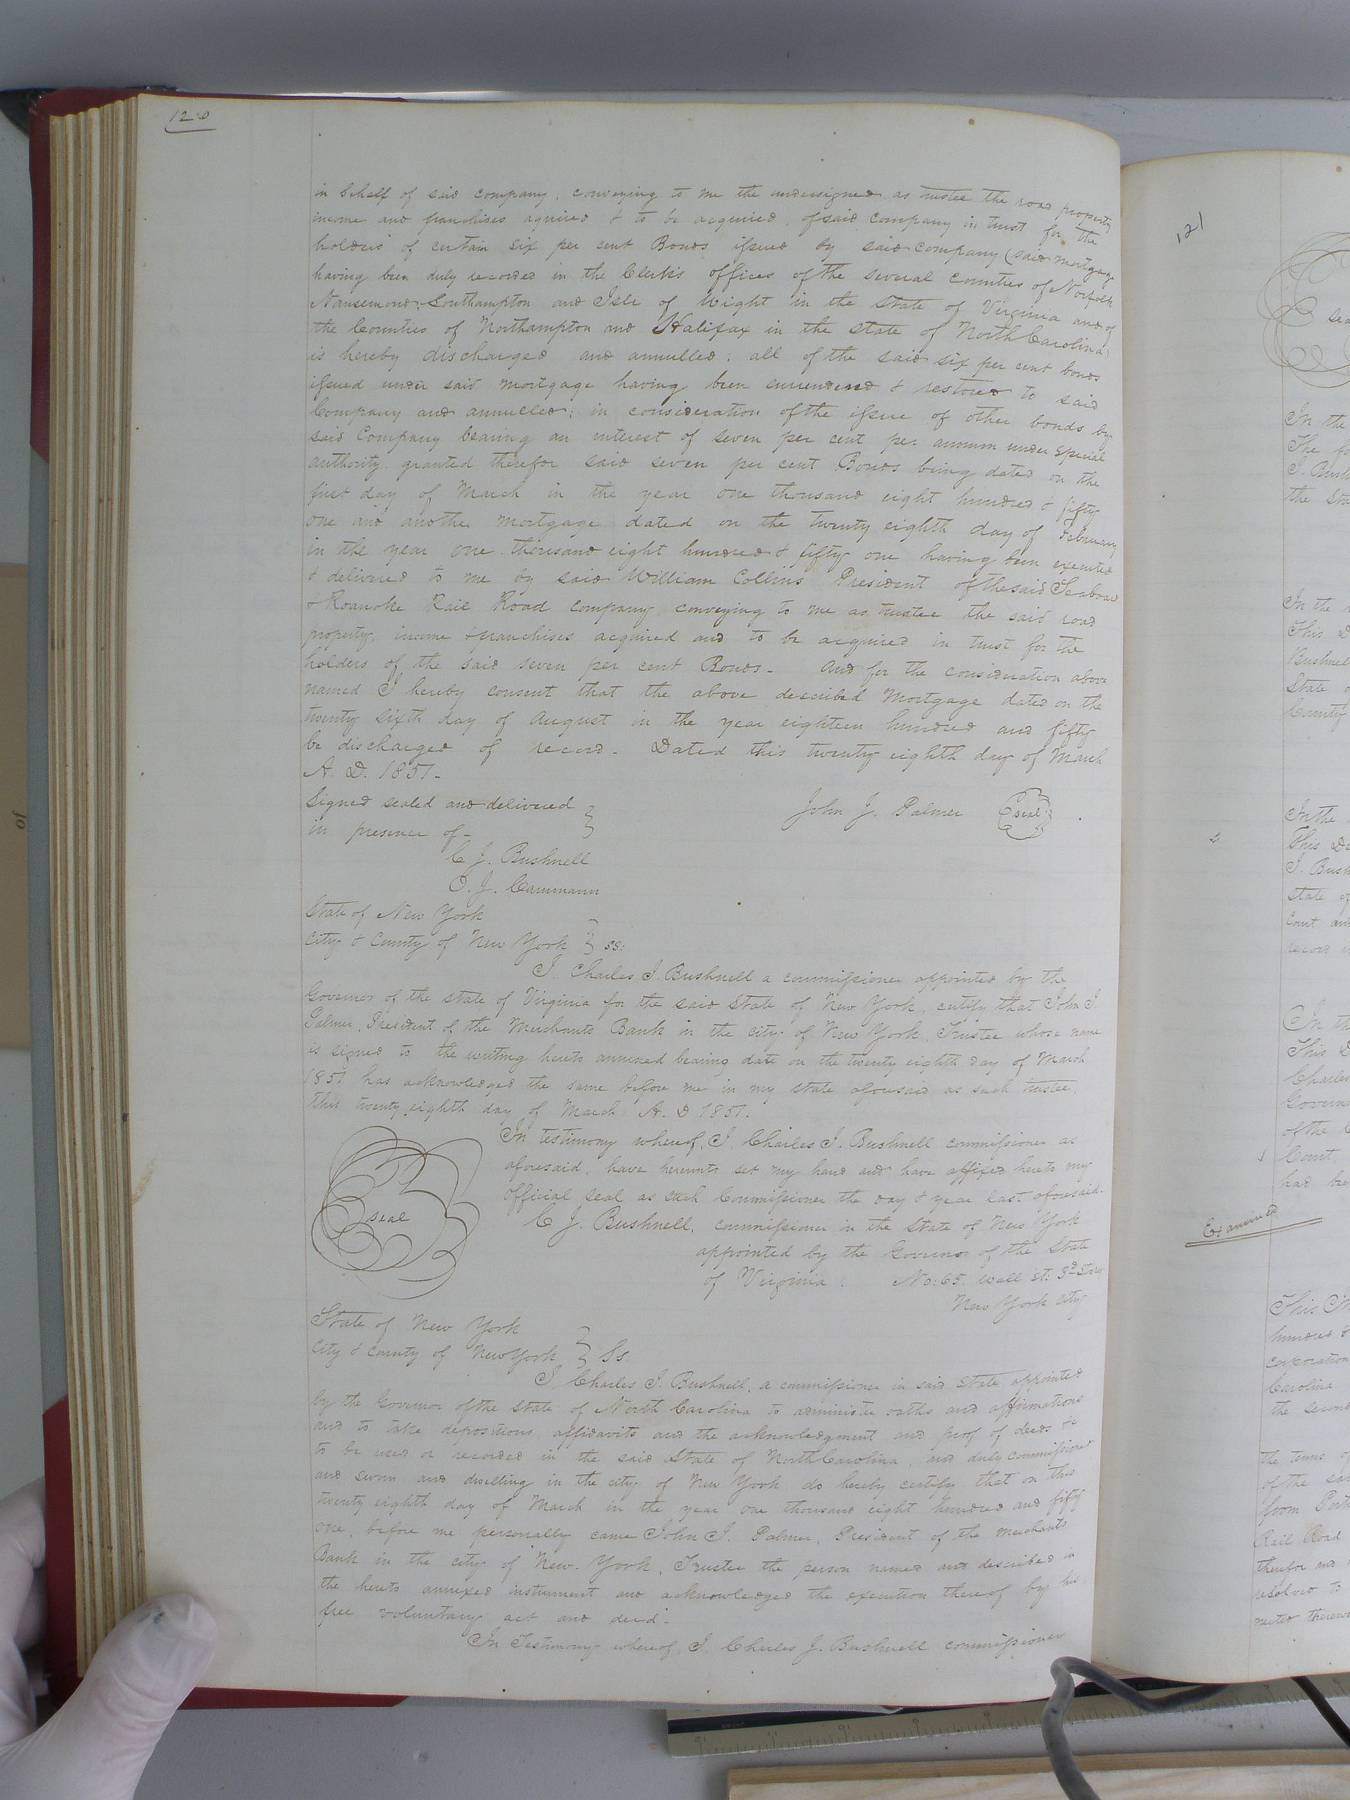 120
in behalf of said company, conveying to me the undersigned as trustee the road property
income and franchises aquired & to be acquired, of said company in trust for the
holders of certain six per cent Bonds issued by said company (said mortgage
having been duly recorded in the Clerks offices of the several counties of Norfolk
Nansemond, Southampton and Isle of Wight in the state of Virginia and of
the Counties of Northampton and Halifax in the state of North Carolina)
is hereby discharged and annulled; all of the said six per cent bonds
issued under said mortgage having been surrendered & restored to said
Company and annulled; in consideration of the issue of other bonds by
said Company bearing an interest of seven per cent per annum under special
authority granted therefor said seven per cent Bonds being dated on the
first day of March in the year one thousand eight hundred & fifty
one and another mortgage dated on the twenty eighth day of February
in the year one thousand eight hundred & fifty one having been executed
& delivered to me by said William Collins President of the said Seaboard
& Roanoke Rail Road Company, conveying to me as trustee the said road
property, income & franchises acquired and to be acquired in trust for the
holders of the said seven per cent Bonds. And for the consideration above
named I hereby consent that the above described Mortgage dated on the
twenty sixth day of August in the year eighteen hundred and fifty
be discharged of record. Dated this twenty eighth day of March
A. D. 1851.
Signed sealed and delivered
in presence of
John J. Palmer seal
C J. Bushnell
O. J. Cammann
State of New York
City & County of New York } ss:
I. Charles J. Bushnell a commissioner appointed by the
Governor of the state of Virginia for the said State of New York, certify that John J.
Palmer, President of the Merchants Bank in the city of New York, Trustee whose name
is signed to the writing hereto annexed bearing date on the twenty eighth day of March
1851 has acknowledged the same before me in my state aforesaid as such trustee,
this twenty eighth day of March A. D 1851.
In testimony whereof, I. Charles J. Bushnell commissioner as
aforesaid, have hereunto set my hand and have affixed hereto my
official seal as such Commissioner the day & year last aforesaid.
seal
C J. Bushnell, commissioner in the state of New York
appointed by the Governor of the State
of Virginia. No: 65, Wall st: 3d Story
New York City
State of New York
City & County of New York } Ss
I Charles J. Bushnell, a commissioner in said state appointed
by the Governor of the State of North Carolina to administer oaths and affirmations
and to take depositions, affidavits and the acknowledgment and proof of deeds &c
to be used or recorded in the said State of North Carolina, and duly commissioned
and sworn and dwelling in the city of New York do hereby certify that on this
twenty eighth day of March in the year one thousand eight hundred and fifty
one, before me personally came John J. Palmer, President of the Merchants
Bank in the city of New York, Trustee the person named and described in
the hereto annexed instrument and acknowledged the execution thereof by his
free voluntary act and deed.
In Testimony whereof, I. Charles J. Bushnell commissioner
121
In the
The fo
the Sta
In the
This D
Bushnell
State o
County
In the
This De
J. Bush
state of
Court an
record
In th
This D
Charles
Governo
of the C
Court
had be
Examined
This In
hundred &
corporation
Carolina
the second
the terms of
of the sai
from Port
Rail Road
therefor and
resolved to
of